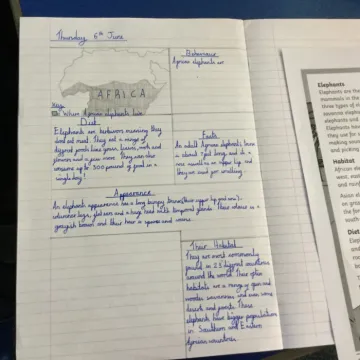 Thursday 6th June
AFRICA
Key
Where African elephants live
Behaviour
African elephants are
Diet
Elephants are herbivores meaning they
dont eat meat. They eat a range of
different foods like grass, leaves, roots and
flowers and a few more. They can also
consume up to 300 pounds of food in a
single day!
Facts
An adult African elephants trunk
is about 7 feet long and is a
nose and upper lip and
they are used for smelling
Appearance
An elephants appearance has a long bumpy trunk (their upper lip and nose),
columnar legs, flat ears and a huge head with temporal glands. Their colour is a
greyish brown and their hair is sparse and coarse.
Their Habitat
They are most commonly
found in 23 different countries
around the world. Their other
habitats are a range of open and
wooden savannas and even some
desert and forests. These
elephants have bigger populations
in Southern and Eastern
African countries.
Elephants
Elephants are the
mammals in the
three types of e
savanna elephan
elephants and
Elephants have
they use for
making sounds
and picking
Habitat
African ele
west, east
and rainf
Asian el
on gras
the for
south
Diet